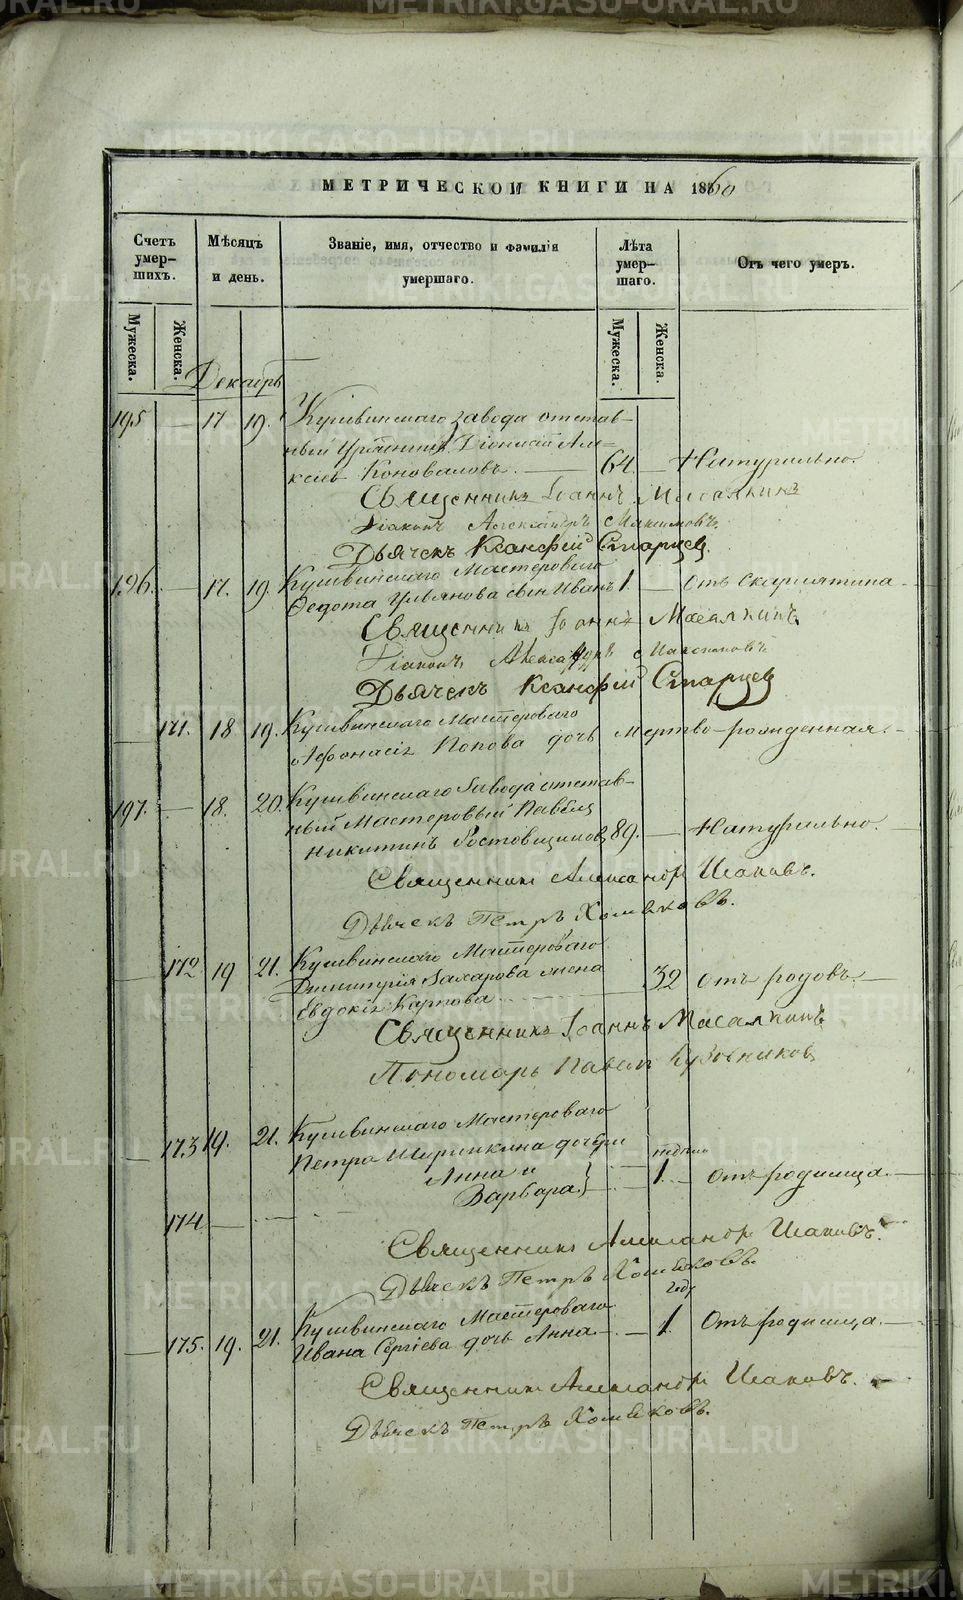 МЕТРИЧЕСКОЙ КНИГИ НА 1860
Счетъ умер-шихъ.
Мѣсяцъ и день.
Званіе, имя, отчество и фамилія умершаго.
Лѣта умер-шаго.
Отъ чего умеръ.
Мужеска.
Женска.
Мужеска.
Женска.
Декабрь
195 — 17 19. Кушвинскаго завода отстав-
ный Діонисій Але-
ксѣевъ Коноваловъ. — 64. — Натурально.
Священникъ Іоаннъ Масалкинъ
Діаконъ Александръ Максимовъ.
Дьячекъ Ксанфій Старцев.
196. — 17. 19. Кушвинскаго Мастероваго
Федота Ульянова сынъ Иванъ 1. — отъ скарлятина
Священникъ Іоаннъ Масалкинъ.
Діаконъ Александръ Максимовъ
Дьячекъ Ксанфій Старцев
— 171. 18 19. Кушвинскаго Мастероваго
Афонасія Попова дочь мертво-рожденная. —
197. — 18. 20. Кушвинскаго Завода отстав-
ный Мастеровый Павелъ
Никитинъ Ростовщиковъ 89. — Натурально. —
Священникъ Александръ Исаковъ.
Дьячекъ Петръ Хомяковъ.
— 172 19 21. Кушвинскаго Мастероваго
Димитрія Захарова жена
Евдокія Карпова 32 отъ родовъ. —
Священникъ Іоаннъ Масалкинъ
Пономарь Павелъ Бубенниковъ
— 173 19. 21. Кушвинскаго Мастероваго
Петра Ширинкина дочери
Анна и
недѣли
Варвара. — 1. — отъ родимца. —
174 —
Священникъ Александръ Исаковъ.
Дьячекъ Петръ Хомяковъ.
годъ
— 175. 19. 21. Кушвинскаго Мастероваго
Ивана Сергіева дочь Анна. — 1. Отъ родимца. —
Священникъ Александръ Исаковъ.
Дьячекъ Петръ Хомяковъ.
METRIKI.GASO-URAL.RU